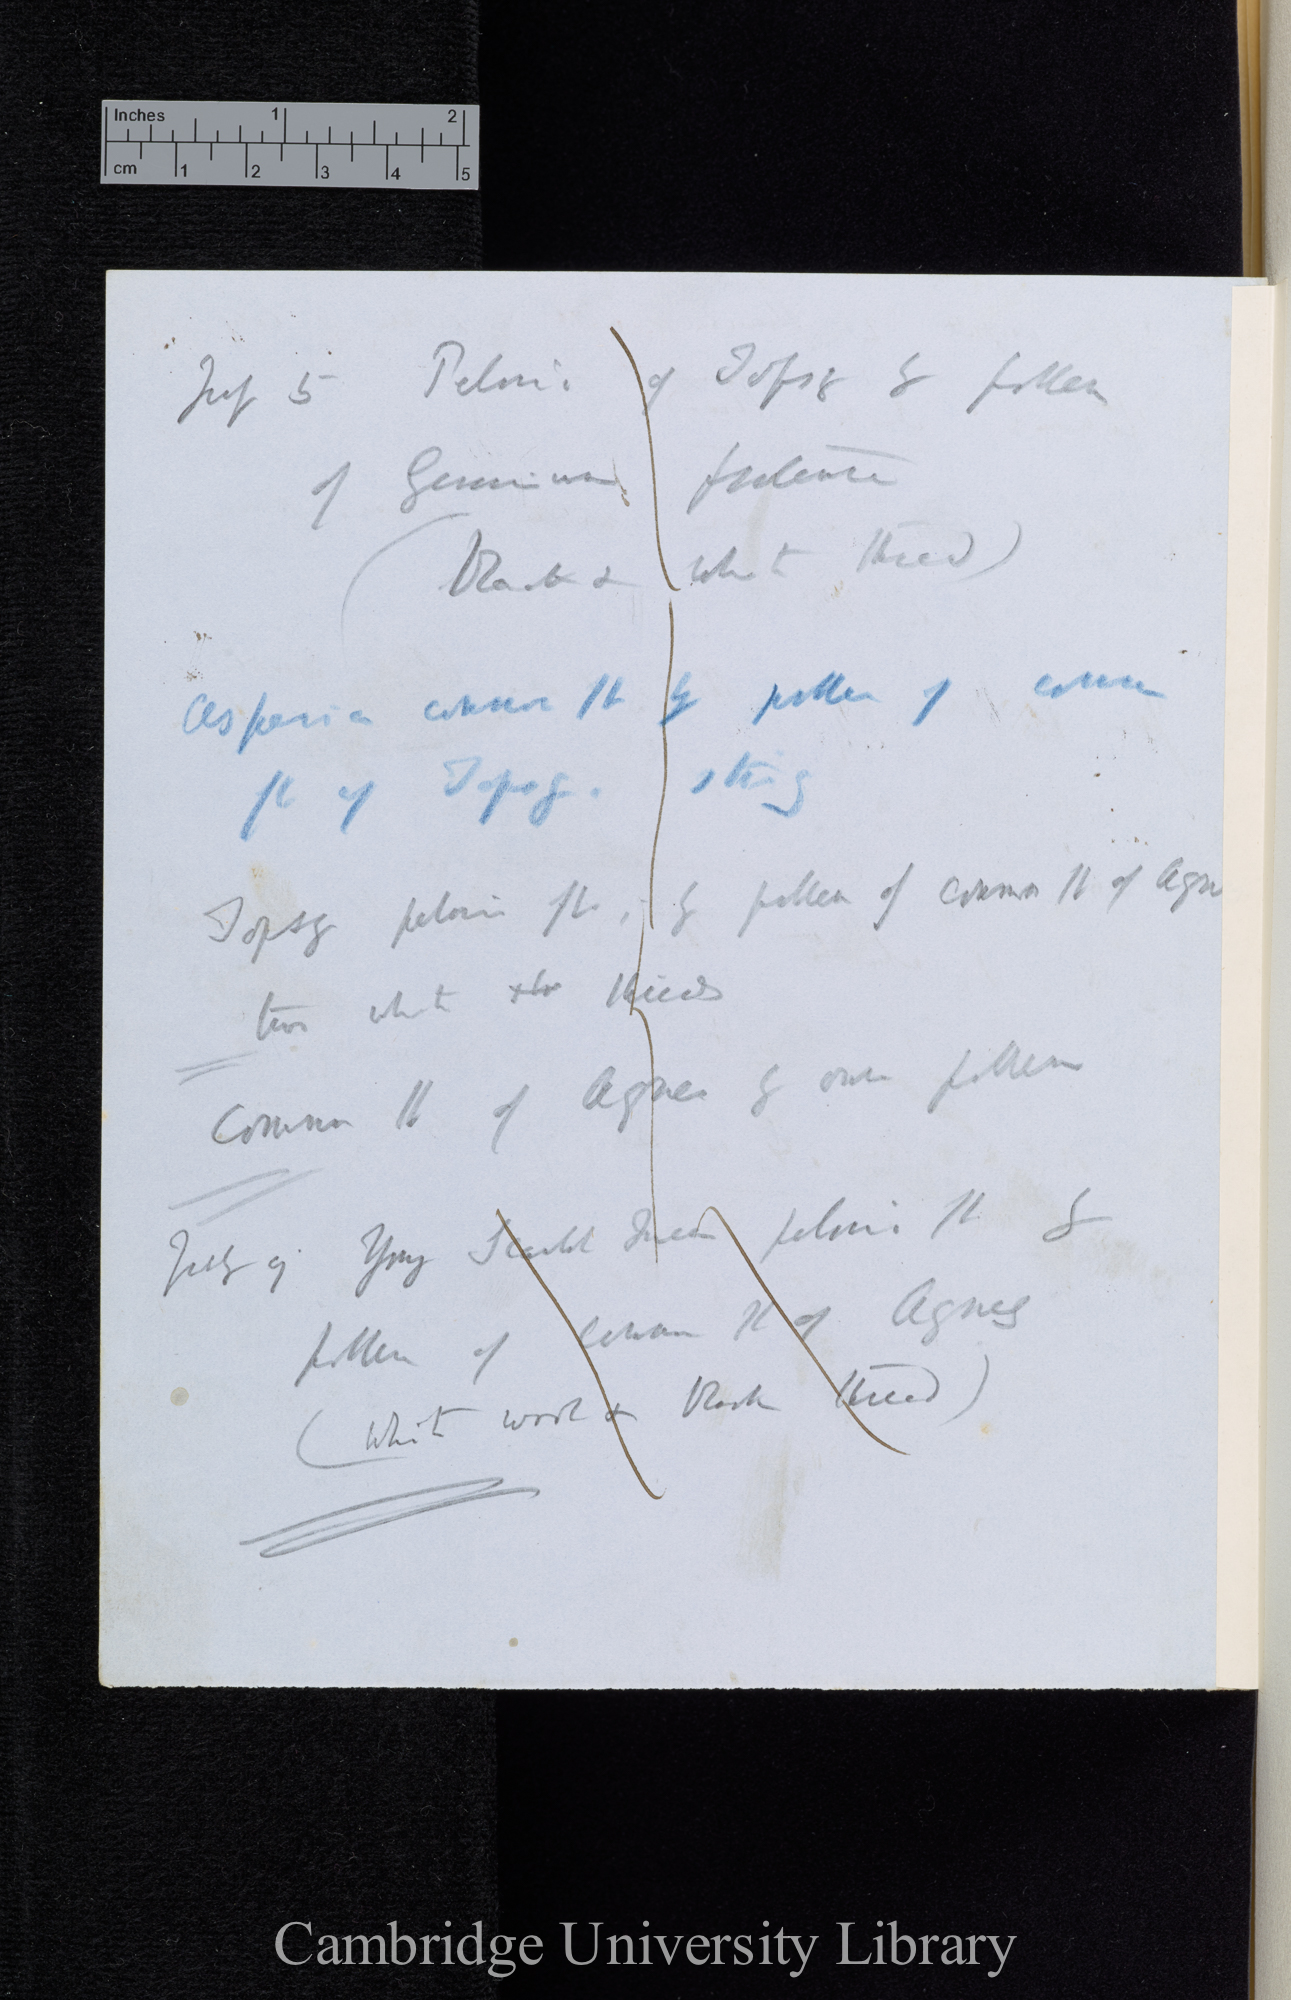 Inches 1 2
cm 1 2 3 4 5
July 5 Peloric of Topsy by pollen
of Geranium
(Black & white thread)
Asparia common fl by pollen of common
fl of Topsy. string
Topsy peloric fl, by pollen of common fl of Agnes
two white threads
Common fl of Agnes by own pollen
July 9 peloric fl by
pollen of common fl of Agnes
(White wool & black thread)
Cambridge University Library